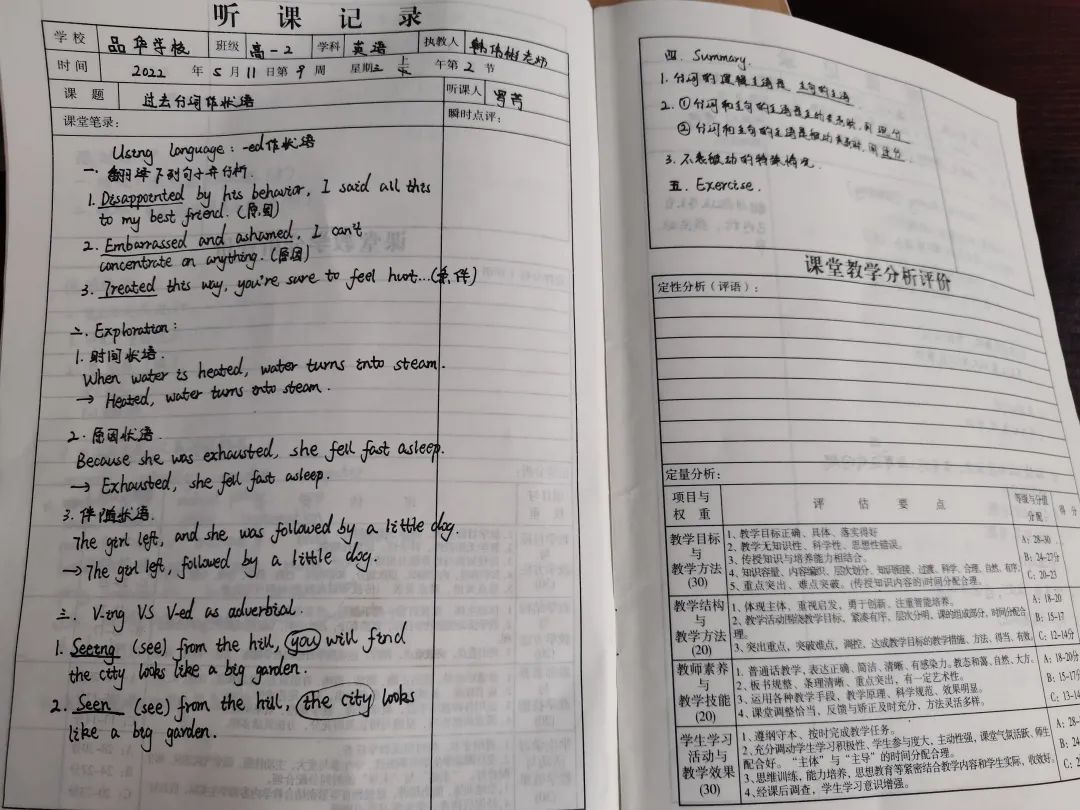 听 课 记 录
学校 品华学校 班级 高一2 学科 英语 执教人 韩倩彬老师
时间 2022 年 5 月 11 日第 9 周 星期三 上 午第 2 节
课 题 过去分词作状语 听课人
课堂笔录： 瞬时点评：
Using language: -ed作状语
一. 翻译下列句子并分析.
1. Disappointed by his behavior, I said all this
to my best friend. (原因)
2. Embarrassed and ashamed, I can't
concentrate on anything. (原因)
3. Treated this way, you're sure to feel hurt...(条件)
二. Exploration:
1. 时间状语.
When water is heated, water turns into steam.
→ Heated, water turns into steam.
2. 原因状语.
Because she was exhausted, she fell fast asleep.
→ Exhausted, she fell fast asleep.
3. 伴随状语.
The girl left, and she was followed by a little dog.
→ The girl left, followed by a little dog.
三. V-ing VS V-ed as adverbial.
1. Seeing (see) from the hill, you will find
the city looks like a big garden.
2. Seen (see) from the hill, the city looks
like a big garden.
四. Summary.
1. 分词的逻辑主语是 主句的主语
2. ①分词和主句的主语是主动关系时, 用 现分
②分词和主句的主语是被动关系时, 用 过分
3. 不表被动的特殊情况.
五. Exercise.
课堂教学分析评价
定性分析（评语）：
定量分析：
项目与权重 评 估 要 点 等级与分值分配 得 分
教学目标与教学方法(30)
1、教学目标正确、具体、落实得好 A：28-30
2、教学无知识性、科学性、思想性错误。
3、传授知识与培养能力相结合。 B：24-27分
4、知识容量、内容编织、层次划分、知识衔接、过渡、科学、合理、自然、有序。
5、重点突出、难点突破。(传授知识内容的)时间分配合理。 C：20-23
教学结构与教学方法(20)
1、体现主体、重视启发，勇于创新、注重智能培养。 A：18-20
2、教学活动围绕教学目标，紧凑有序，层次分明，课的组成部分，时间分配合理。 B：15-17
3、突出重点，突破难点，调控，达成教学目标的教学措施、方法，得当，有效。 C：12-14分
教师素养与教学技能(20)
1、普通话教学，表达正确、简洁、清晰、有感染力。教态和蔼、自然、大方。 A：18-20分
2、板书规整、条理清晰、重点突出，有一定艺术性。
3、运用各种教学手段、教学原理、科学规范、效果明显。 B：15-17分
4、课堂调整恰当，反馈与矫正及时充分，方法灵活多样。 C：13-14
学生学习活动与教学效果(30)
1、遵纲守本、按时完成教学任务。 A：28-
2、充分调动学生学习积极性，学生参与度大，主动性强，课堂气氛活跃，师生
配合好。“主体”与“主导”的时间分配合理。 B：24
3、思维训练，能力培养，思想教育等紧密结合教学内容和学生实际，收效好。
4、经课后调查，学生学习意识增强。 C：2